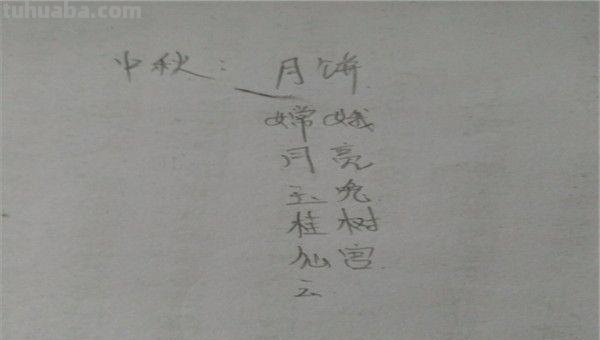 tuhuaba.com
中秋: 月饼
嫦娥
月亮
玉兔
桂树
仙宫
云